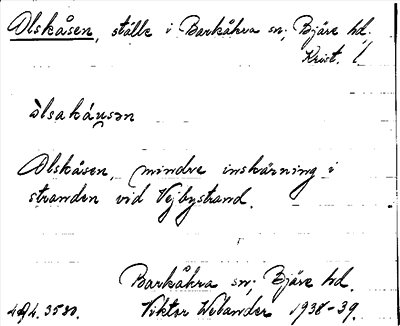 Olskåsen, ställe i Barkåkra sn; Bjäre hd,
Krist. l
òlsakáusən
Olskåsen, mindre inskärning i
stranden vid Vejbystrand.
Barkåkra sn; Bjäre hd.
494.3580. Viktor Welander 1938-39.